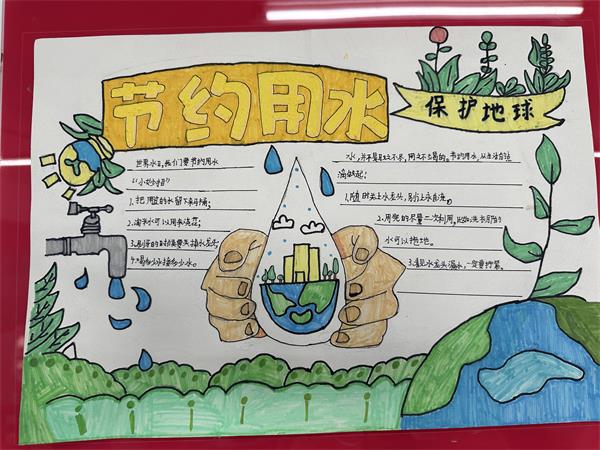 节约用水
保护地球
世界水日,我们要节约用水
"小妙招"
1. 把用过的水留下来冲桶;
2. 淘米水可以用来浇花;
3. 刷牙的时候要关掉水龙头;
4. 喝多少水接多少水。
水,并不是取之不尽,用之不竭的。节约用水,从生活点
滴做起:
1. 随时关上水龙头,别让水白流;
2. 用完的尽量二次利用,比如:洗衣服的
水可以拖地。
3. 看见水龙头漏水,一定要拧紧。